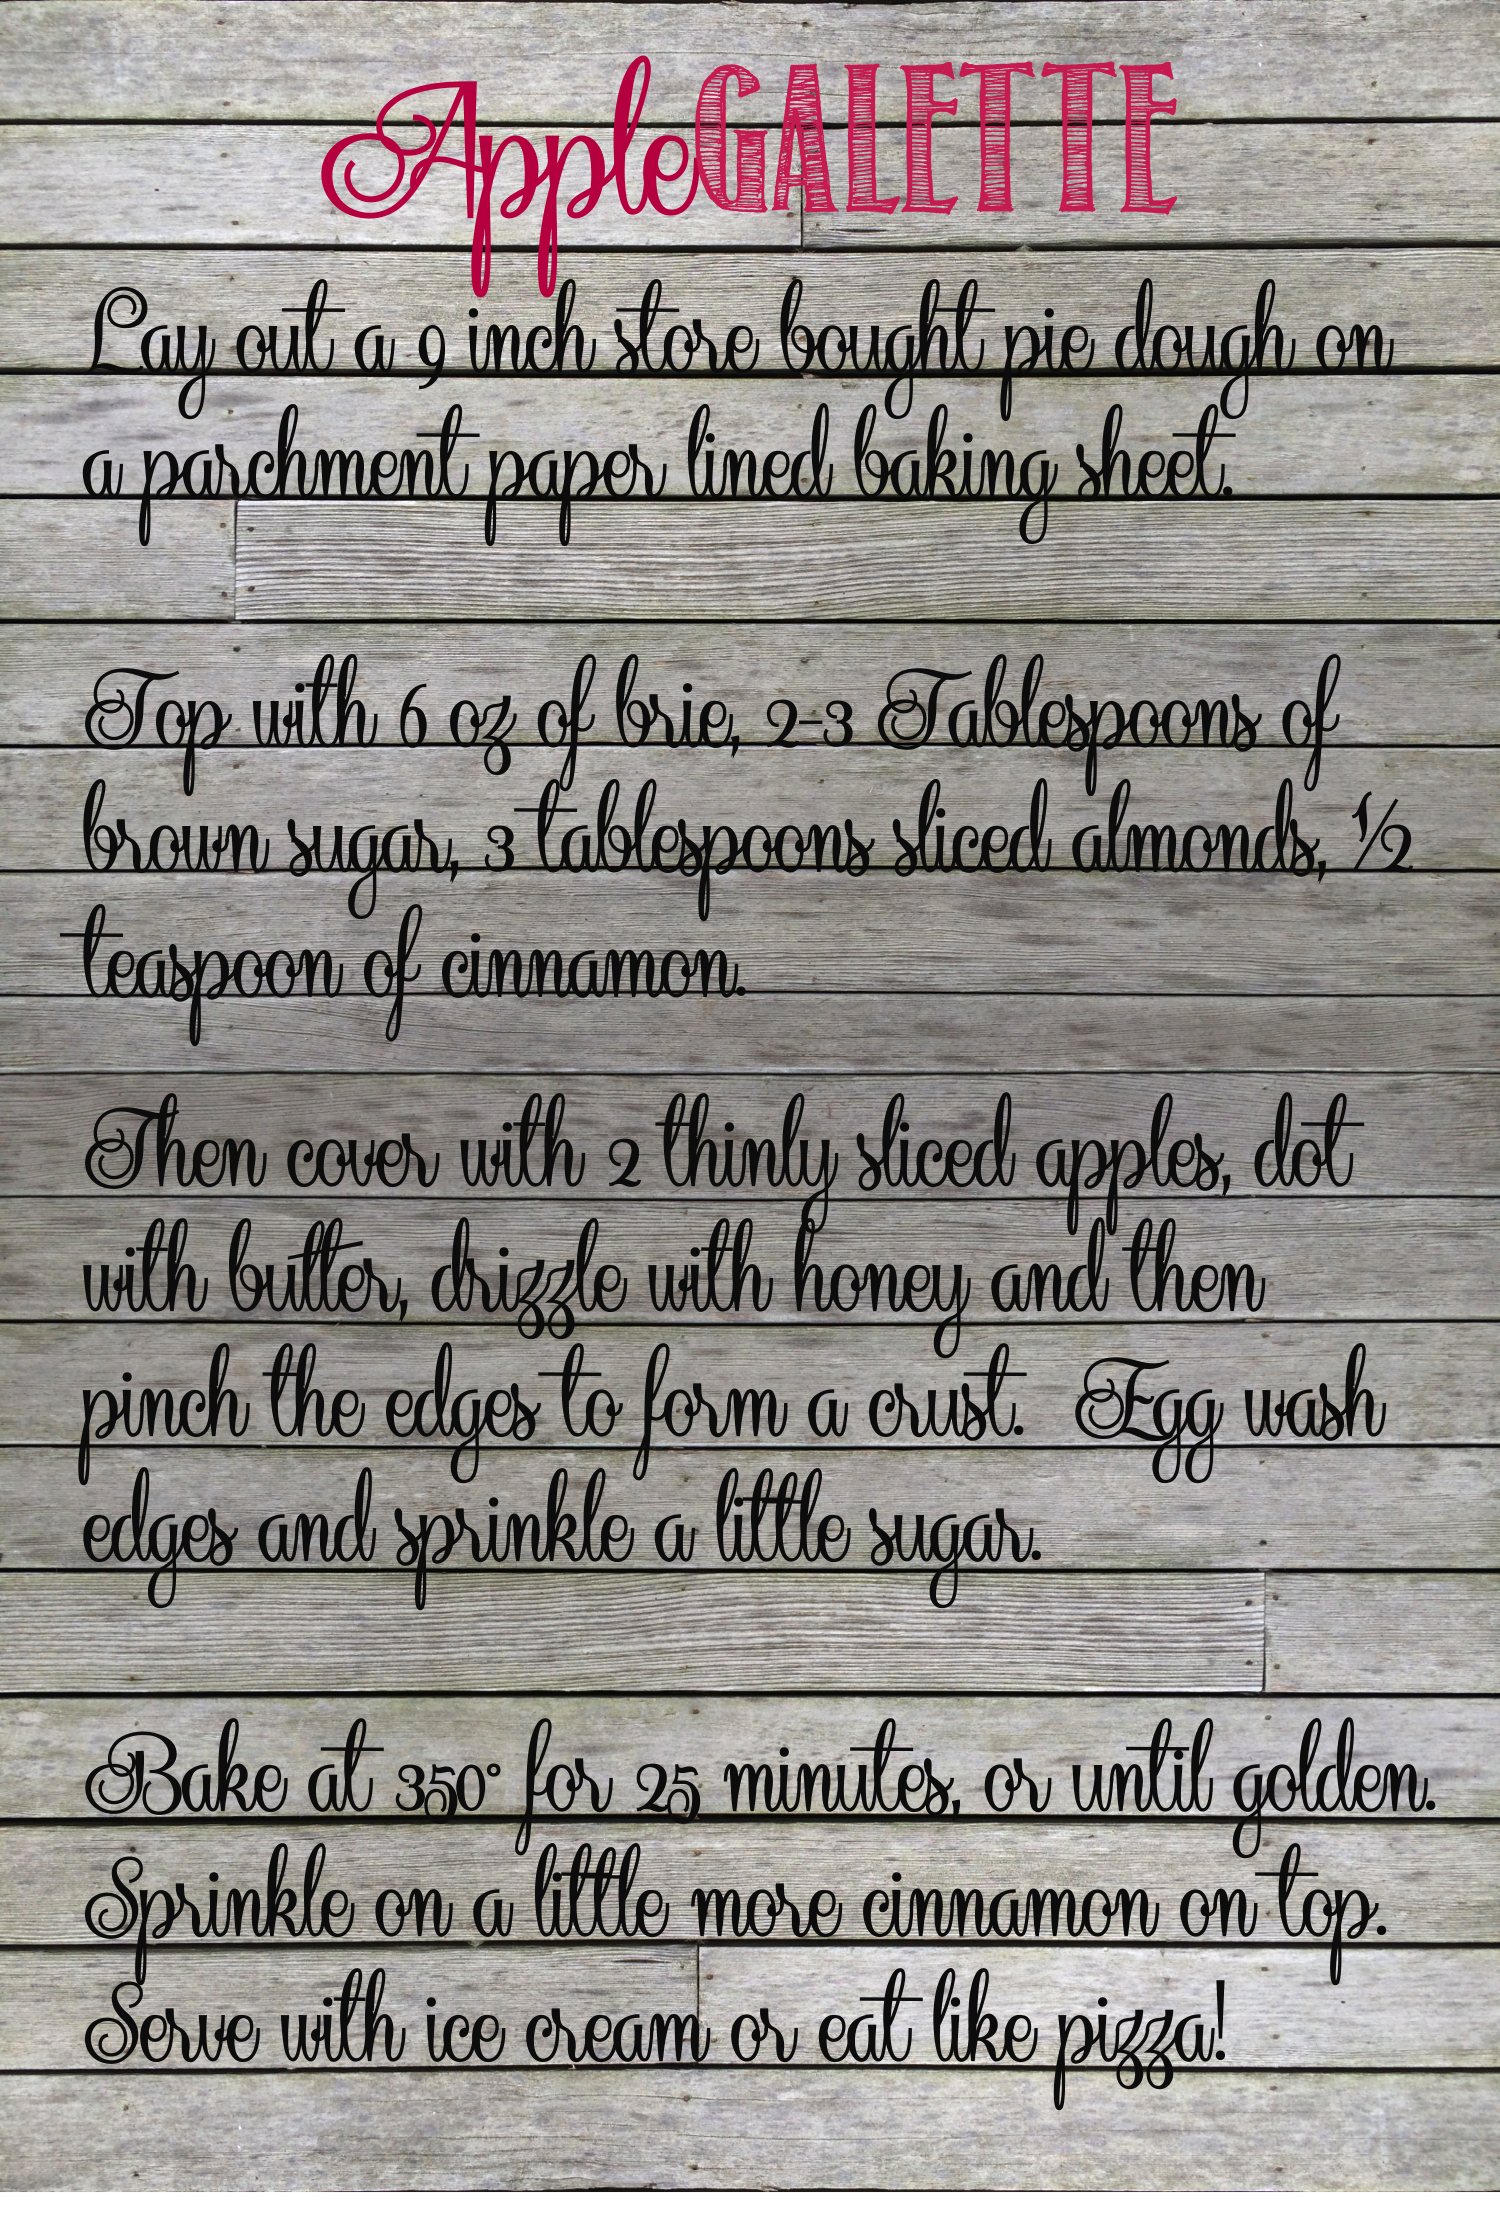 Apple GALETTE
Lay out a 9 inch store bought pie dough on
a parchment paper lined baking sheet.
Top with 6 oz of brie, 2-3 Tablespoons of
brown sugar, 3 tablespoons sliced almonds, ½
teaspoon of cinnamon.
Then cover with 2 thinly sliced apples, dot
with butter, drizzle with honey and then
pinch the edges to form a crust. Egg wash
edges and sprinkle a little sugar.
Bake at 350° for 25 minutes, or until golden.
Sprinkle on a little more cinnamon on top.
Serve with ice cream or eat like pizza!